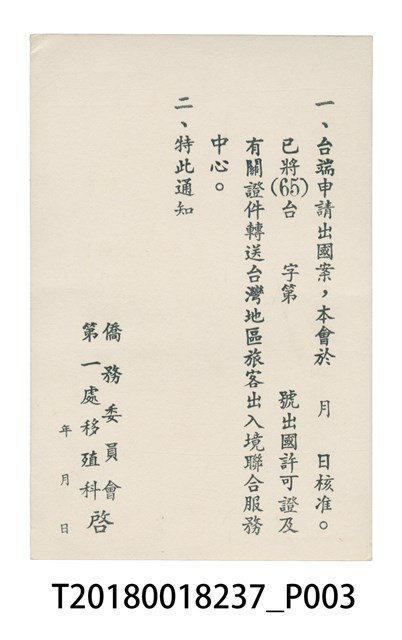 一、台端申請出國案，本會於　月　日核准。
已將(65)台　字第　號出國許可證及
有關證件轉送台灣地區旅客出入境聯合服務
中心。
二、特此通知
僑務委員會
第一處移殖科 啓
年　月　日
T20180018237_P003